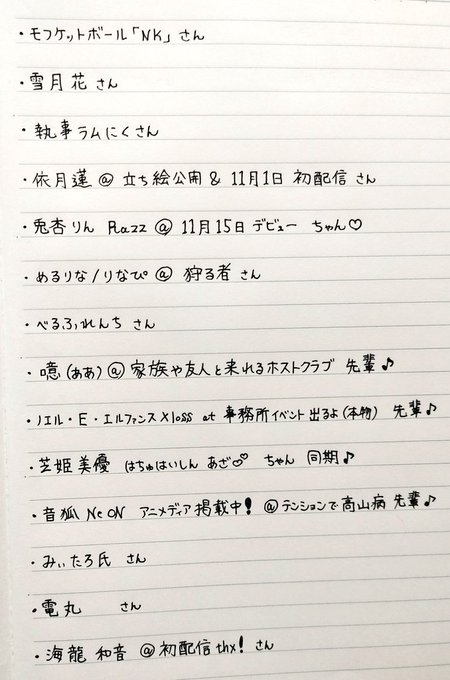 ・モフケットボール「NK」さん
・雪月花 さん
・執事ラムにくさん
・依月蓮@立ち絵公開&11月1日 初配信 さん
・兎杏りん Razz @ 11月15日デビュー ちゃん♡
・めるりな/りなぴ@ 狩る者 さん
・べるふれんち さん
・噫(ああ)@家族や友人と来れるホストクラブ 先輩♪
・ノエル・E・エルファンス×loss at 事務所イベント出るよ(本物) 先輩♪
・芝姫美優 はちゅはいしん あざ♡ ちゃん 同期♪
・音狐 Ne ON アニメディア掲載中! @テンションで高山病 先輩♪
・みぃたろ氏 さん
・電丸 さん
・海龍 和音 @初配信thx! さん